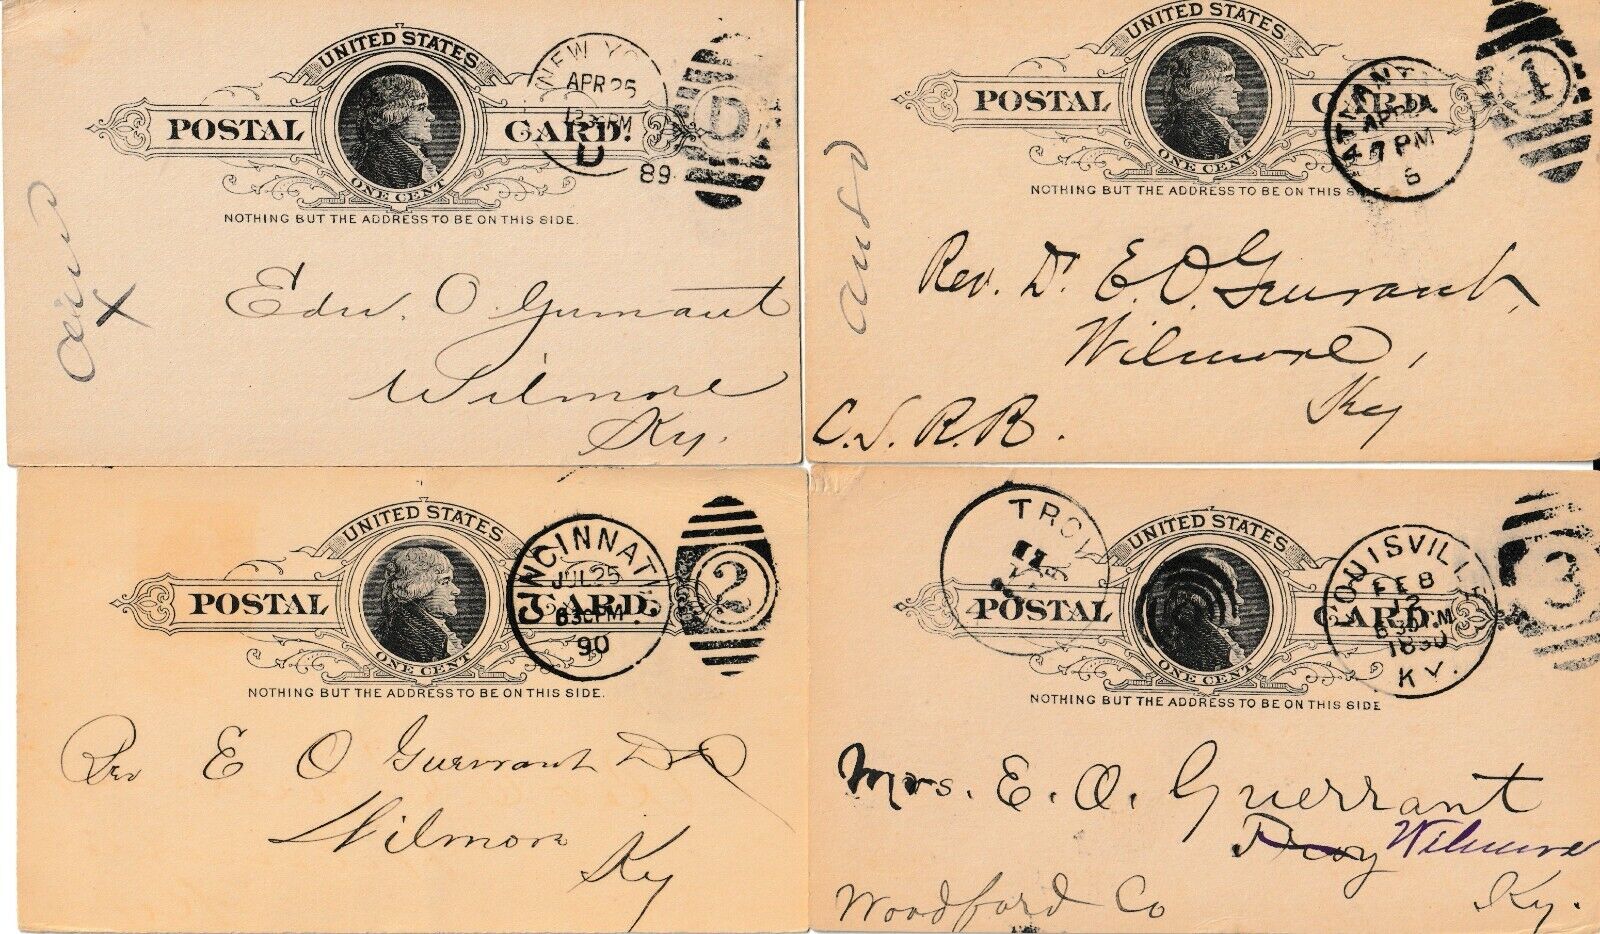 UNITED STATES
POSTAL CARD.
ONE CENT
NOTHING BUT THE ADDRESS TO BE ON THIS SIDE.
NEW YO
APR 25
D
89
D
Edw. O. Gurrant
Wilmore
Ky.
UNITED STATES
POSTAL CARD.
ONE CENT
NOTHING BUT THE ADDRESS TO BE ON THIS SIDE
7 PM
4
ansd
Rev. Dr. E. O. Guerrant,
Wilmore,
Ky
C. S. R. R.
UNITED STATES
POSTAL CARD.
ONE CENT
NOTHING BUT THE ADDRESS TO BE ON THIS SIDE.
CINCINNATI
JUL 25
630 PM
90
2
Rev E O Guerrant DD
Wilmore
Ky
UNITED STATES
POSTAL CARD.
ONE CENT
NOTHING BUT THE ADDRESS TO BE ON THIS SIDE
TROY
LOUISVILLE
FEB 8
12
630PM
1890
KY.
3
Mrs. E. O. Guerrant
Troy Wilmore
Woodford Co Ky.